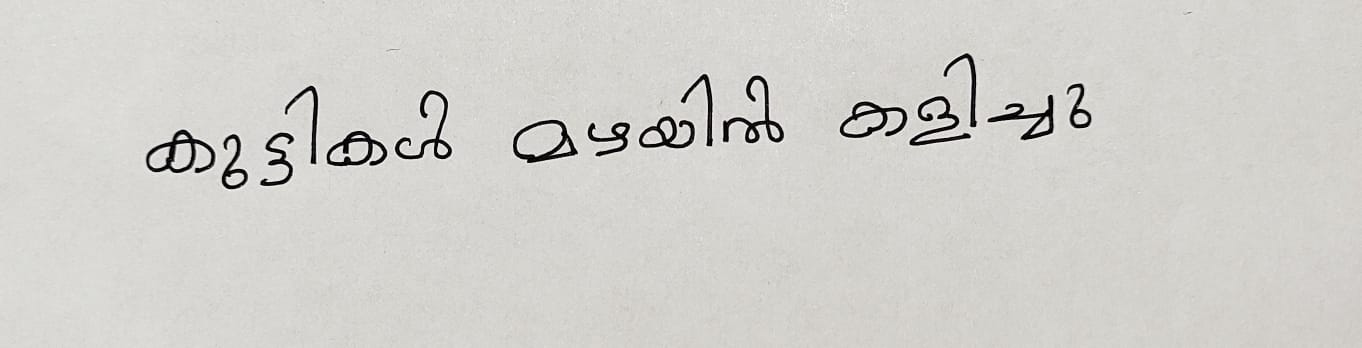 കുട്ടികൾ മഴയിൽ കളിച്ചു